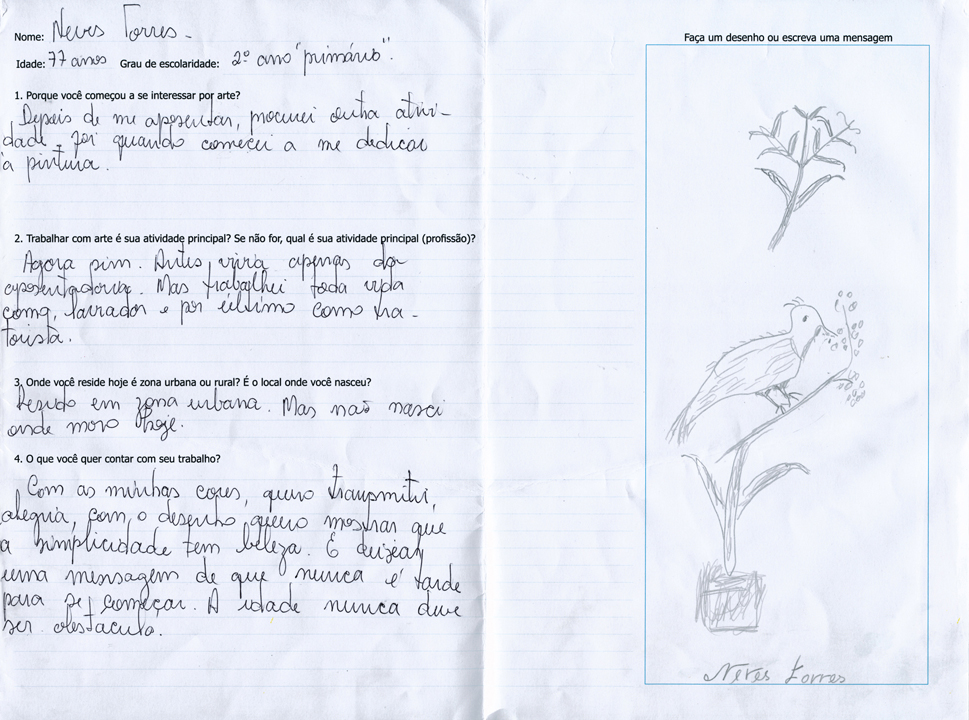 Nome: Neves Torres -
Idade: 77 anos Grau de escolaridade: 2º ano "primário".
1. Porque você começou a se interessar por arte?
Depois de me aposentar, procurei outra ativi-
dade, foi quando comecei a me dedicar
à pintura.
2. Trabalhar com arte é sua atividade principal? Se não for, qual é sua atividade principal (profissão)?
Agora sim. Antes, vivia apenas da
aposentadoria. Mas trabalhei toda vida
como, lavrador e por último como tra-
torista.
3. Onde você reside hoje é zona urbana ou rural? É o local onde você nasceu?
Resido em zona urbana. Mas não nasci
onde moro hoje.
4. O que você quer contar com seu trabalho?
Com as minhas cores, quero transmitir,
alegria, com o desenho quero mostrar que
a simplicidade tem beleza. E deixar
uma mensagem de que nunca é tarde
para se começar. A idade nunca deve
ser obstaculo.
Faça um desenho ou escreva uma mensagem
Neves torres